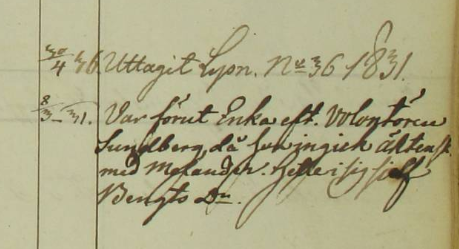 30/4 36. Uttagit Lysn. No 36 1831.
8/3 - 31. Var förut Enka eft. Volontören
Sundberg, då hon ingick äktensk.
med Melander. Hette i sig sjelf
Bengts Dr.